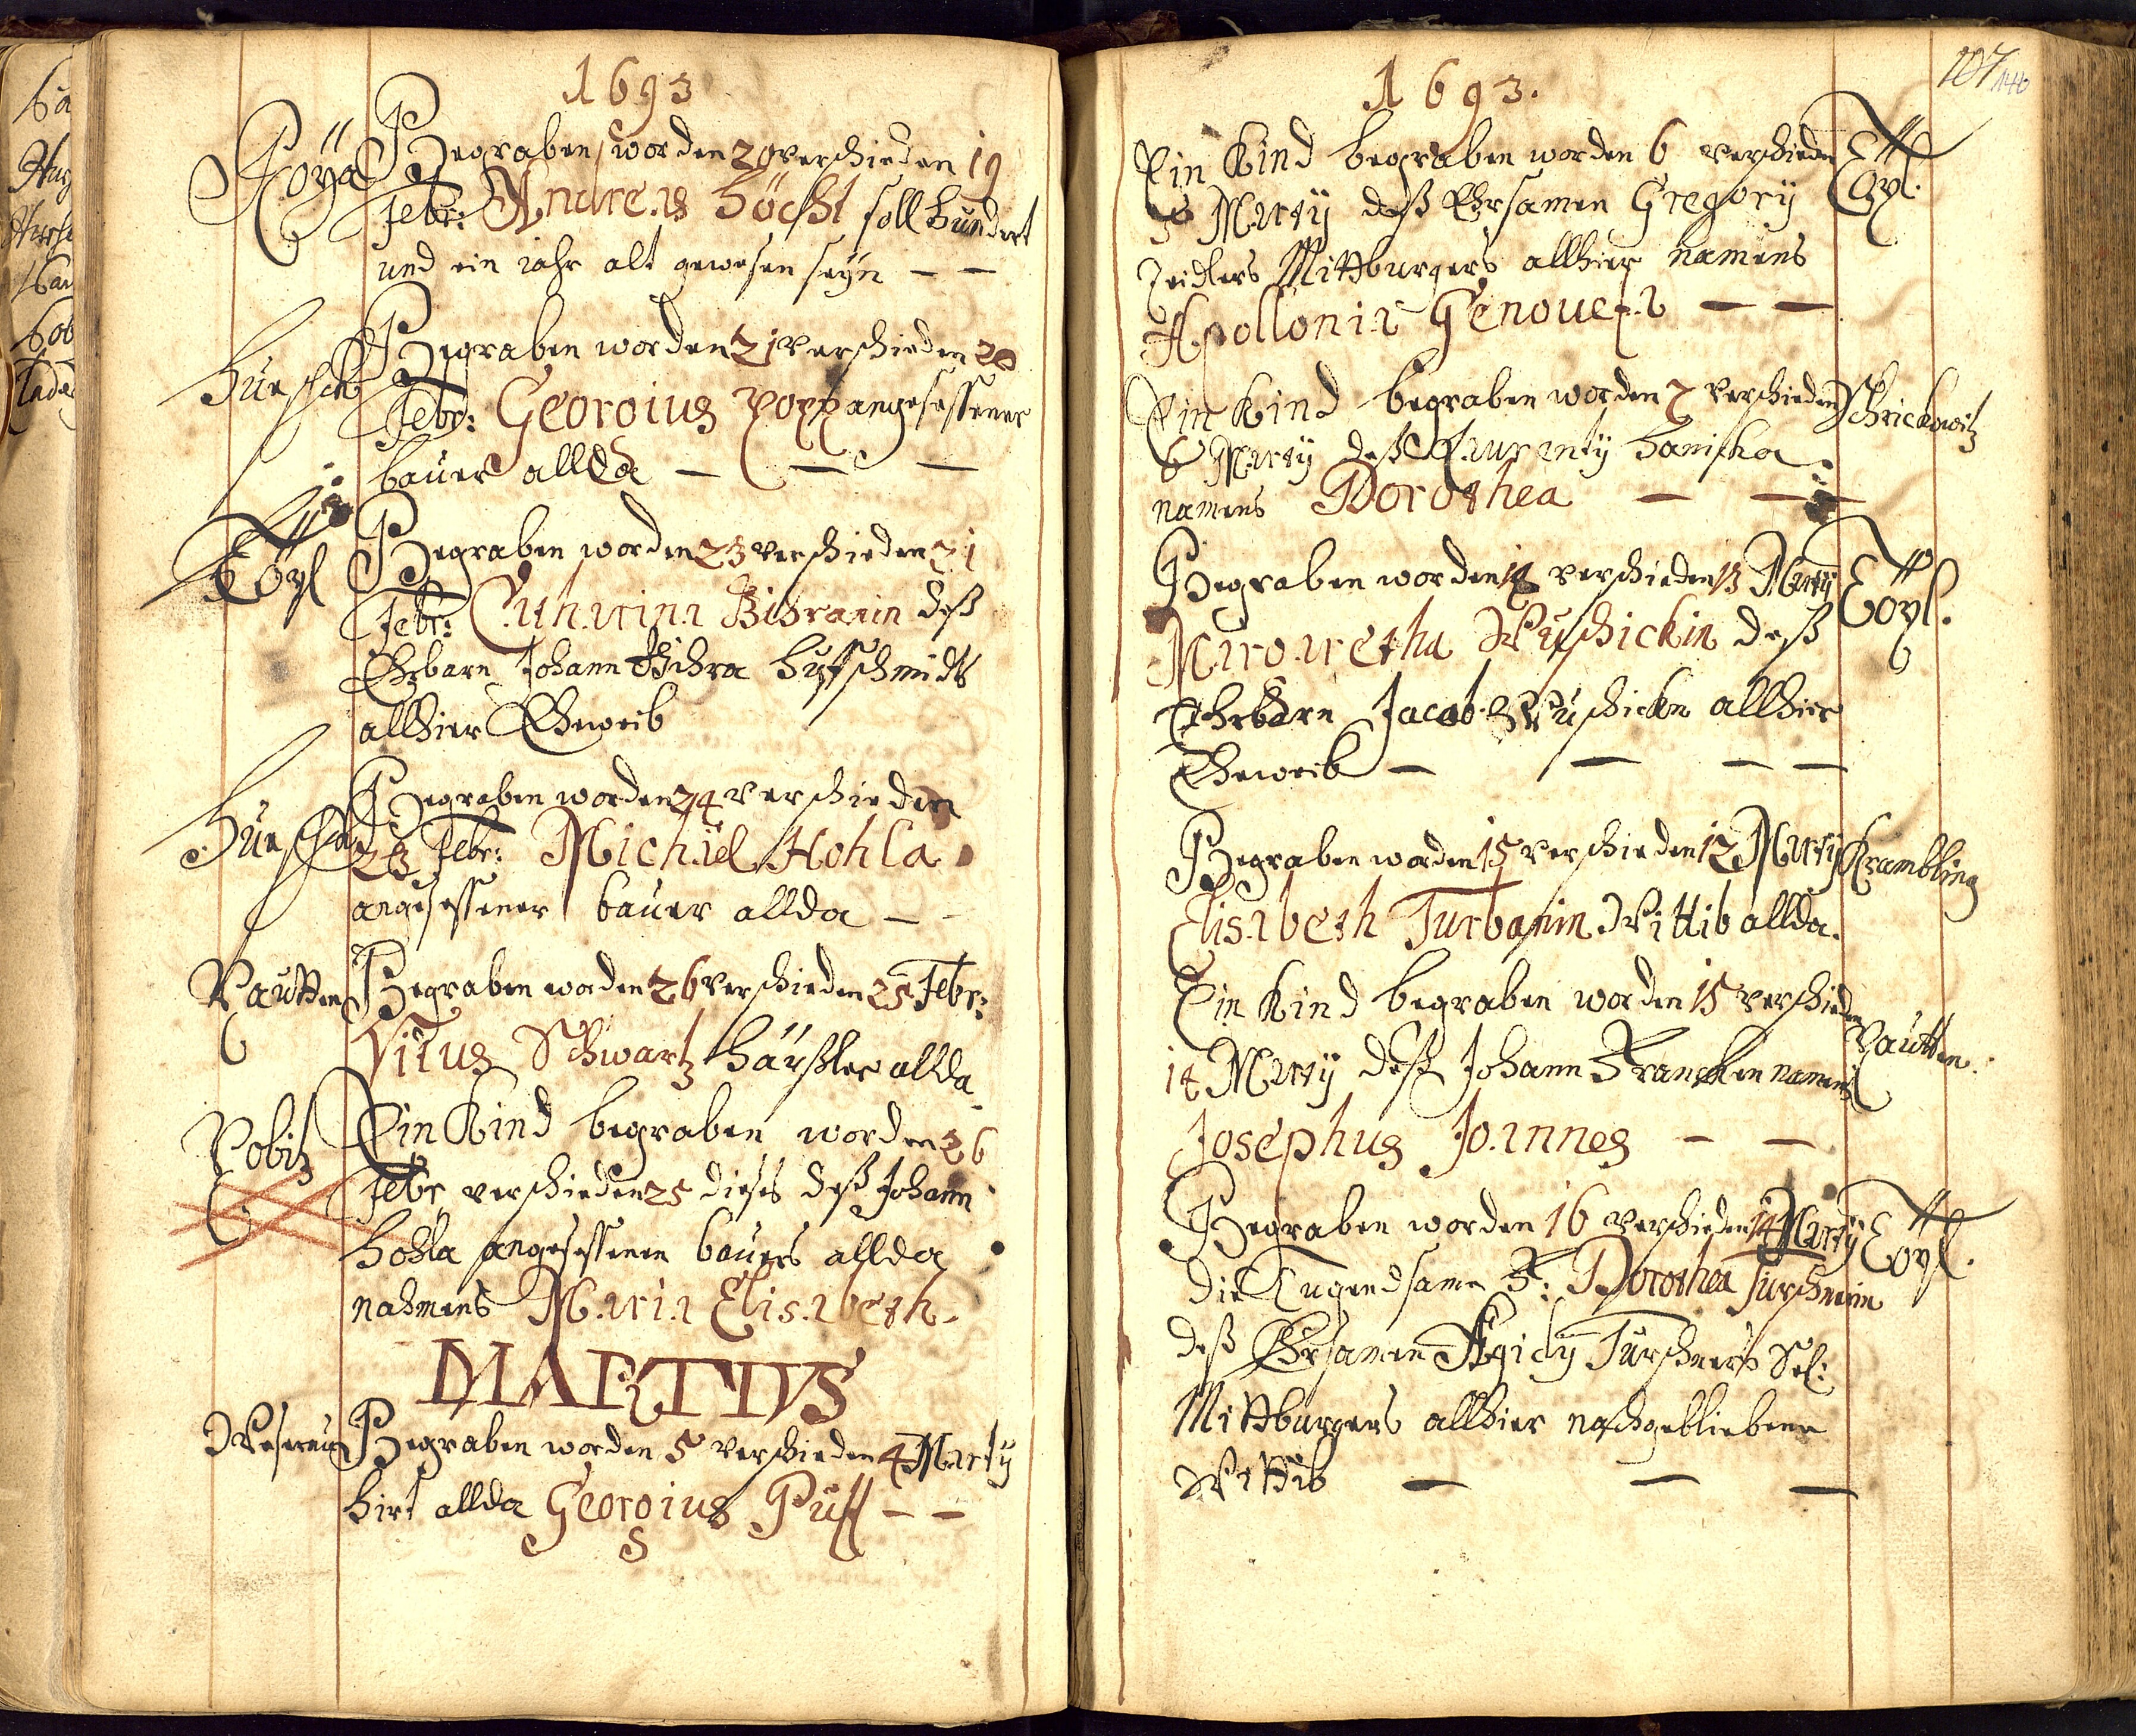 1693
Begraben worden 20 verschieden 19
Febr: Andreas Höchl soll hundert
und ein jahr alt gewesen seÿn — —
Begraben worden 21 verschieden 20
Febr: Georgius Popp angesessener
bauer allda — — —
Töpl
Begraben worden 23 verschieden 21
Febr: Catharina Bihranin deß
Ehrbarn Johann Bihra huffschmidts
allhier Eheweib
Begraben worden 24 verschieden
23 Febr: Michäel Hohla
angesessener bauer allda —
Pautten
Begraben worden 26 verschieden 25 Febr:
Vitus Schwartz häußler allda
Pobitz
Ein Kind begraben worden 26
Febr verschieden 25 dieses deß Johann
Hohla angesessenen bauers allda
nahmens Maria Elisabeth.
MARTIVS
Begraben worden 5 verschieden 4 Martÿ
hirt allda Georgius Puff — —
1693.
107
140
Ein Kind begraben worden 6 verschieden
5 Martÿ deß Ehrsamen Gregorÿ
Zeidlers Mittburgers allhier namens
Apollonia Genouefa — —
Töpl.
Ein Kind begraben worden 7 verschieden
6 Martÿ deß Laurentÿ Hanischa
namens Dorothea — —
Schrickowitz
Begraben worden 14 verschieden 13 Martÿ
Margaretha Wuschickin deß
Ehrbarn Jacob Wuschicken allhier
Eheweib — — — —
Töpl.
Begraben worden 15 verschieden 12 Martÿ
Elisabeth Turbanin Wittib allda.
Krambling
Ein Kind begraben worden 15 verschieden
14 Martÿ deß Johann Francken namens
Josephus Joannes — —
Pautten.
Begraben worden 16 verschieden 14 Martÿ
die Tugendsame F: Dorothea Turschnerin
deß Ehrsamen Ægidÿ Turschners Sel:
Mittburgers allhier nachgebliebene
Wittib — — —
Töpl.